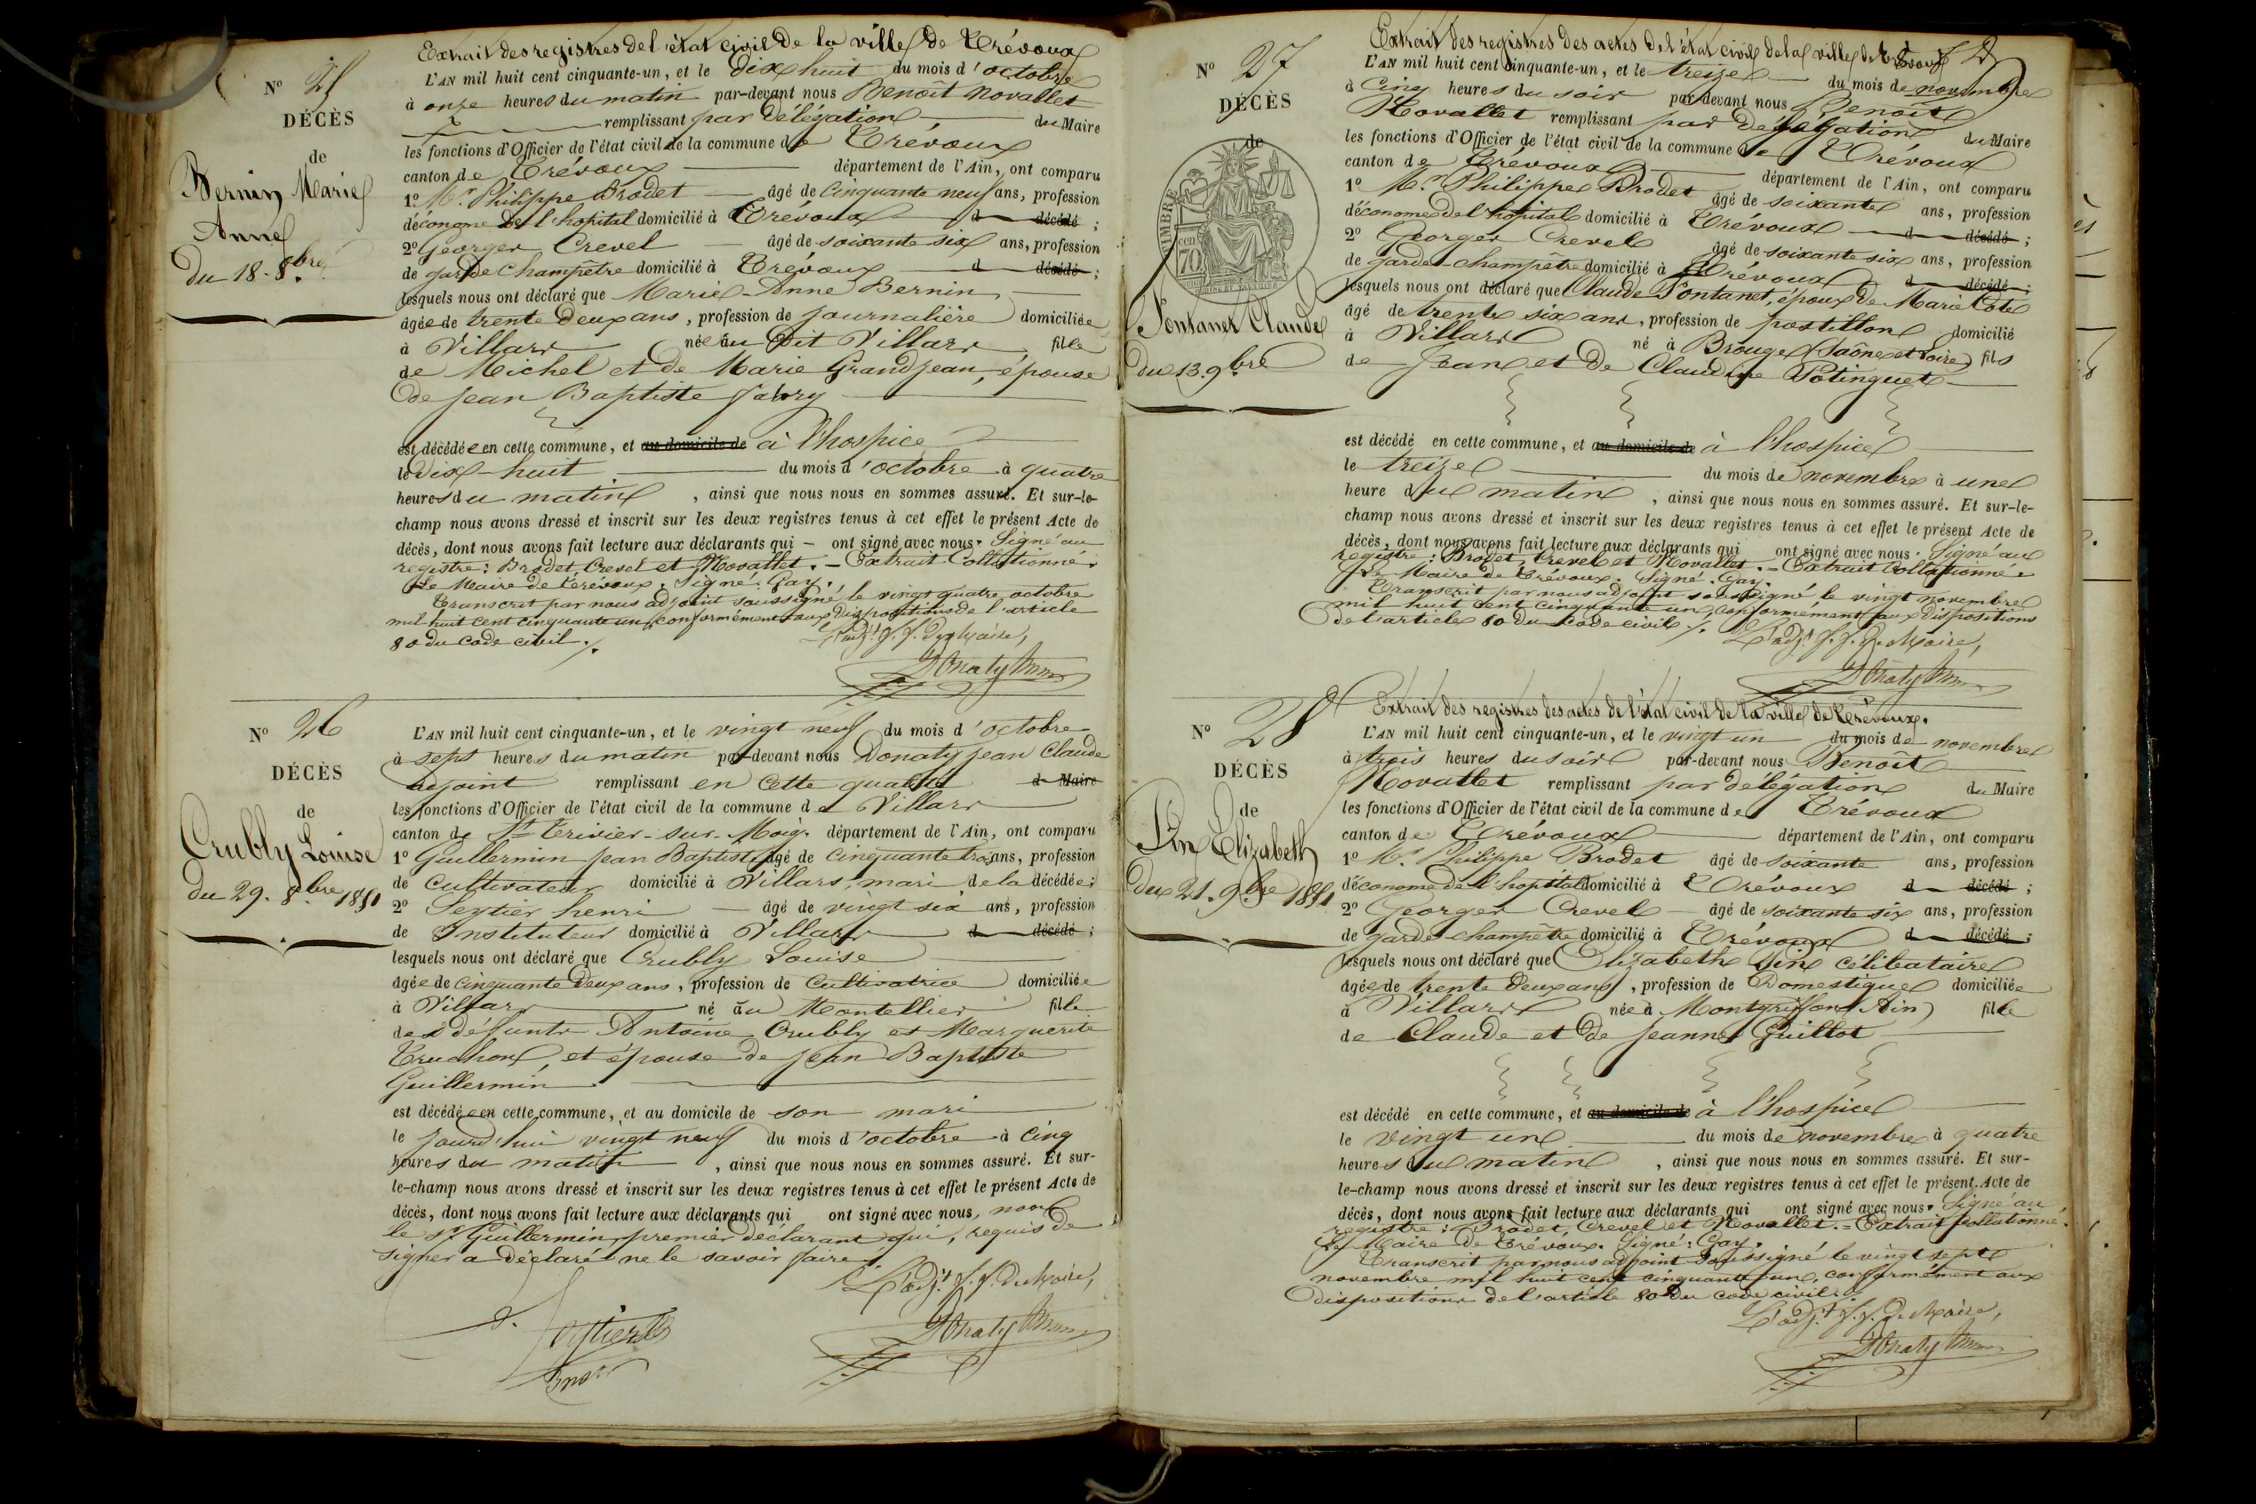 Extrait des registres de l'état civil de la ville de Trévoux
Nº 25
DÉCÈS
de
Bernin Marie
Anne
du 18. 8.bre
L'AN mil huit cent cinquante-un, et le dix huit du mois d'octobre
à onze heures du matin par-devant nous Benoît Novallet
remplissant par délégation du Maire
les fonctions d'Officier de l'état civil de la commune de Trévoux
canton de Trévoux département de l'Ain, ont comparu
1º Mr. Philippe Brodet âgé de cinquante neuf ans, profession
d'économe de l'hopital domicilié à Trévoux d décédé ;
2º Georges Crevel âgé de soixante six ans, profession
de garde champêtre domicilié à Trévoux d décédé ;
lesquels nous ont déclaré que Marie-Anne Bernin
âgée de trente deux ans, profession de journalière domiciliée
à Villars née au dit Villars fille
de Michel et de Marie Grandjean, épouse
de Jean Baptiste
est décédée en cette commune, et au domicile de à l'hospice
le dix-huit du mois d'octobre à quatre
heures du matin, ainsi que nous nous en sommes assuré. Et sur-le-
champ nous avons dressé et inscrit sur les deux registres tenus à cet effet le présent Acte de
décès, dont nous avons fait lecture aux déclarants qui – ont signé avec nous. Signé au
registre : Brodet Crevel et Novallet. – Extrait Collationné.
Le Maire de Trévoux. Signé : Gay.
Transcrit par nous adjoint soussigné le vingt quatre octobre
mil huit cent cinquante un, conformément aux dispositions de l'article
80 du code civil ./.
L'adjt. f. f. de Maire,
Donaty
Nº 26
DÉCÈS
de
Crubly Louise
du 29. 8.bre 1851
L'AN mil huit cent cinquante-un, et le vingt neuf du mois d'octobre
à sept heures du matin par-devant nous Donaty Jean Claude
adjoint remplissant en cette qualité d Maire
les fonctions d'Officier de l'état civil de la commune de Villars
canton de St Trivier-sur-Moig. département de l'Ain, ont comparu
1º Guillermin Jean Baptiste âgé de cinquante trois ans, profession
de cultivateur domicilié à Villars, mari de la décédée ;
2º Septier henri âgé de vingt six ans, profession
de Instituteur domicilié à Villars d décédé ;
lesquels nous ont déclaré que Crubly Louise
âgée de cinquante deux ans, profession de cultivatrice domiciliée
à Villars né au Montellier fille
de défunts Antoine Crubly et Marguerite
Truchon, et épouse de Jean Baptiste
Guillermin
est décédée en cette commune, et au domicile de son mari
le jourd'hui vingt neuf du mois d'octobre à cinq
heures du matin, ainsi que nous nous en sommes assuré. Et sur-
le-champ nous avons dressé et inscrit sur les deux registres tenus à cet effet le présent Acte de
décès, dont nous avons fait lecture aux déclarants qui ont signé avec nous, non
le sr. Guillermin, premier déclarant qui, requis de
signer a déclaré ne le savoir faire.
L'adjt. f. f. de Maire,
Septier
Donaty
Extrait des registres des actes de l'état civil de la ville de Trévoux
Nº 27
DÉCÈS
de
TIMBRE
cen
70
Fontanet Claude
du 13. 9.bre
L'AN mil huit cent cinquante-un, et le treize du mois de novembre
à cinq heures du soir par-devant nous Benoît
Novallet remplissant par délégation du Maire
les fonctions d'Officier de l'état civil de la commune de Trévoux
canton de Trévoux département de l'Ain, ont comparu
1º Mr. Philippe Brodet âgé de soixante ans, profession
d'économe de l'hopital domicilié à Trévoux d décédé ;
2º Georges Crevel âgé de soixante six ans, profession
de garde-champêtre domicilié à Trévoux d décédé ;
lesquels nous ont déclaré que Claude Fontanet, époux de Marie Coté
âgé de trente six ans, profession de postillon domicilié
à Villars né à Brouge (Saône et Loire) fils
de Jean et de Claudine Potinguet
est décédé en cette commune, et au domicile de à l'hospice
le treize du mois de novembre à une
heure du matin, ainsi que nous nous en sommes assuré. Et sur-le-
champ nous avons dressé et inscrit sur les deux registres tenus à cet effet le présent Acte de
décès, dont nous avons fait lecture aux déclarants qui ont signé avec nous. Signé au
registre : Brodet, Crevel et Novallet. – Extrait Collationné.
Le Maire de Trévoux. Signé : Gay.
Transcrit par nous adjoint soussigné le vingt novembre
mil huit cent cinquante un, conformément aux dispositions
de l'article 80 du code civil ./.
L'adjt. f. f. de Maire,
Donaty
Extrait des registres des actes de l'état civil de la ville de Trévoux.
Nº 28
DÉCÈS
de
Pin Elizabeth
du 21. 9.bre 1851
L'AN mil huit cent cinquante-un, et le vingt un du mois de novembre
à trois heures du soir par-devant nous Benoît
Novallet remplissant par délégation du Maire
les fonctions d'Officier de l'état civil de la commune de Trévoux
canton de Trévoux département de l'Ain, ont comparu
1º Mr. Philippe Brodet âgé de soixante ans, profession
d'économe de l'hopital domicilié à Trévoux d décédé ;
2º Georges Crevel âgé de soixante six ans, profession
de garde-champêtre domicilié à Trévoux d décédé ;
lesquels nous ont déclaré que Elizabeth Pin célibataire
âgée de trente deux ans, profession de Domestique domiciliée
à Villars née à Montgriffon (Ain) fille
de Claude et de Jeanne Guillot
est décédé en cette commune, et au domicile de à l'hospice
le vingt un du mois de novembre à quatre
heures du matin, ainsi que nous nous en sommes assuré. Et sur-
le-champ nous avons dressé et inscrit sur les deux registres tenus à cet effet le présent Acte de
décès, dont nous avons fait lecture aux déclarants qui ont signé avec nous. Signé au
registre : Brodet, Crevel et Novallet. – Extrait collationné.
Le Maire de Trévoux. Signé : Gay.
Transcrit par nous adjoint soussigné le vingt sept
novembre mil huit cent cinquante un, conformément aux
dispositions de l'article 80 du code civil
L'adjt. f. f. de Maire,
Donaty